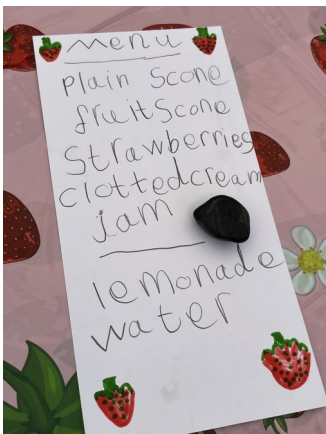 menu
plain Scone
fruit Scone
Strawberries
clotted cream
jam
lemonade
water